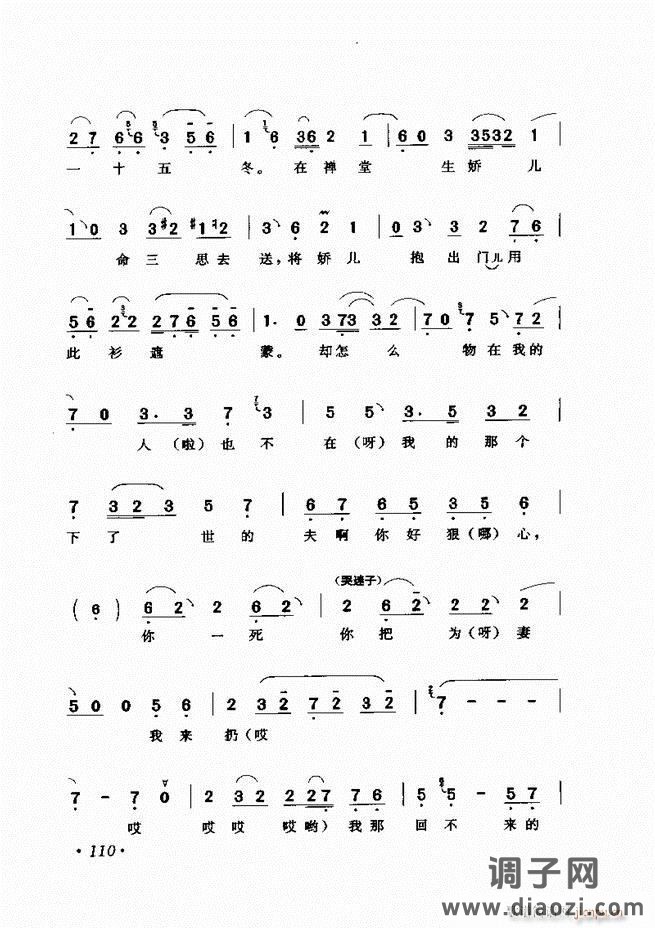 2 7 6 6 3 5 6 | 1 6 3 6 2 1 | 6 0 3 3532 1 |
一十五 冬。在禅堂 生娇儿
1 0 3 3 2 1 2 | 3 6 2 1 | 0 3 3 2 7 6 |
命三思去送,将娇儿 抱出门儿用
5 6 2 2 2 7 6 5 6 | 1· 0 3 7 3 3 2 | 7 0 7 5 7 2 |
此衫遮 蒙。却怎么 物在我的
7 0 3· 3 7 3 | 5 5 3· 5 3 2 |
人(啦)也不 在(呀)我的那个
7 3 2 3 5 7 | 6 7 6 5 3 5 6 |
下了 世的 夫啊你好狠(哪)心,
(哭迷子)
( 6 ) 6 2 2 6 2 | 2 6 2 2 2 2 |
你一死 你把为(呀)妻
5 0 0 5 6 | 2 3 2 7 2 3 2 | 7 - - - |
我来扔(哎
7 - 7 0 | 2 3 2 2 2 7 7 6 | 5 5 - 5 7 |
哎 哎哎 哎哟)我那 回不 来的
·110·
调子网
www.diaozi.com